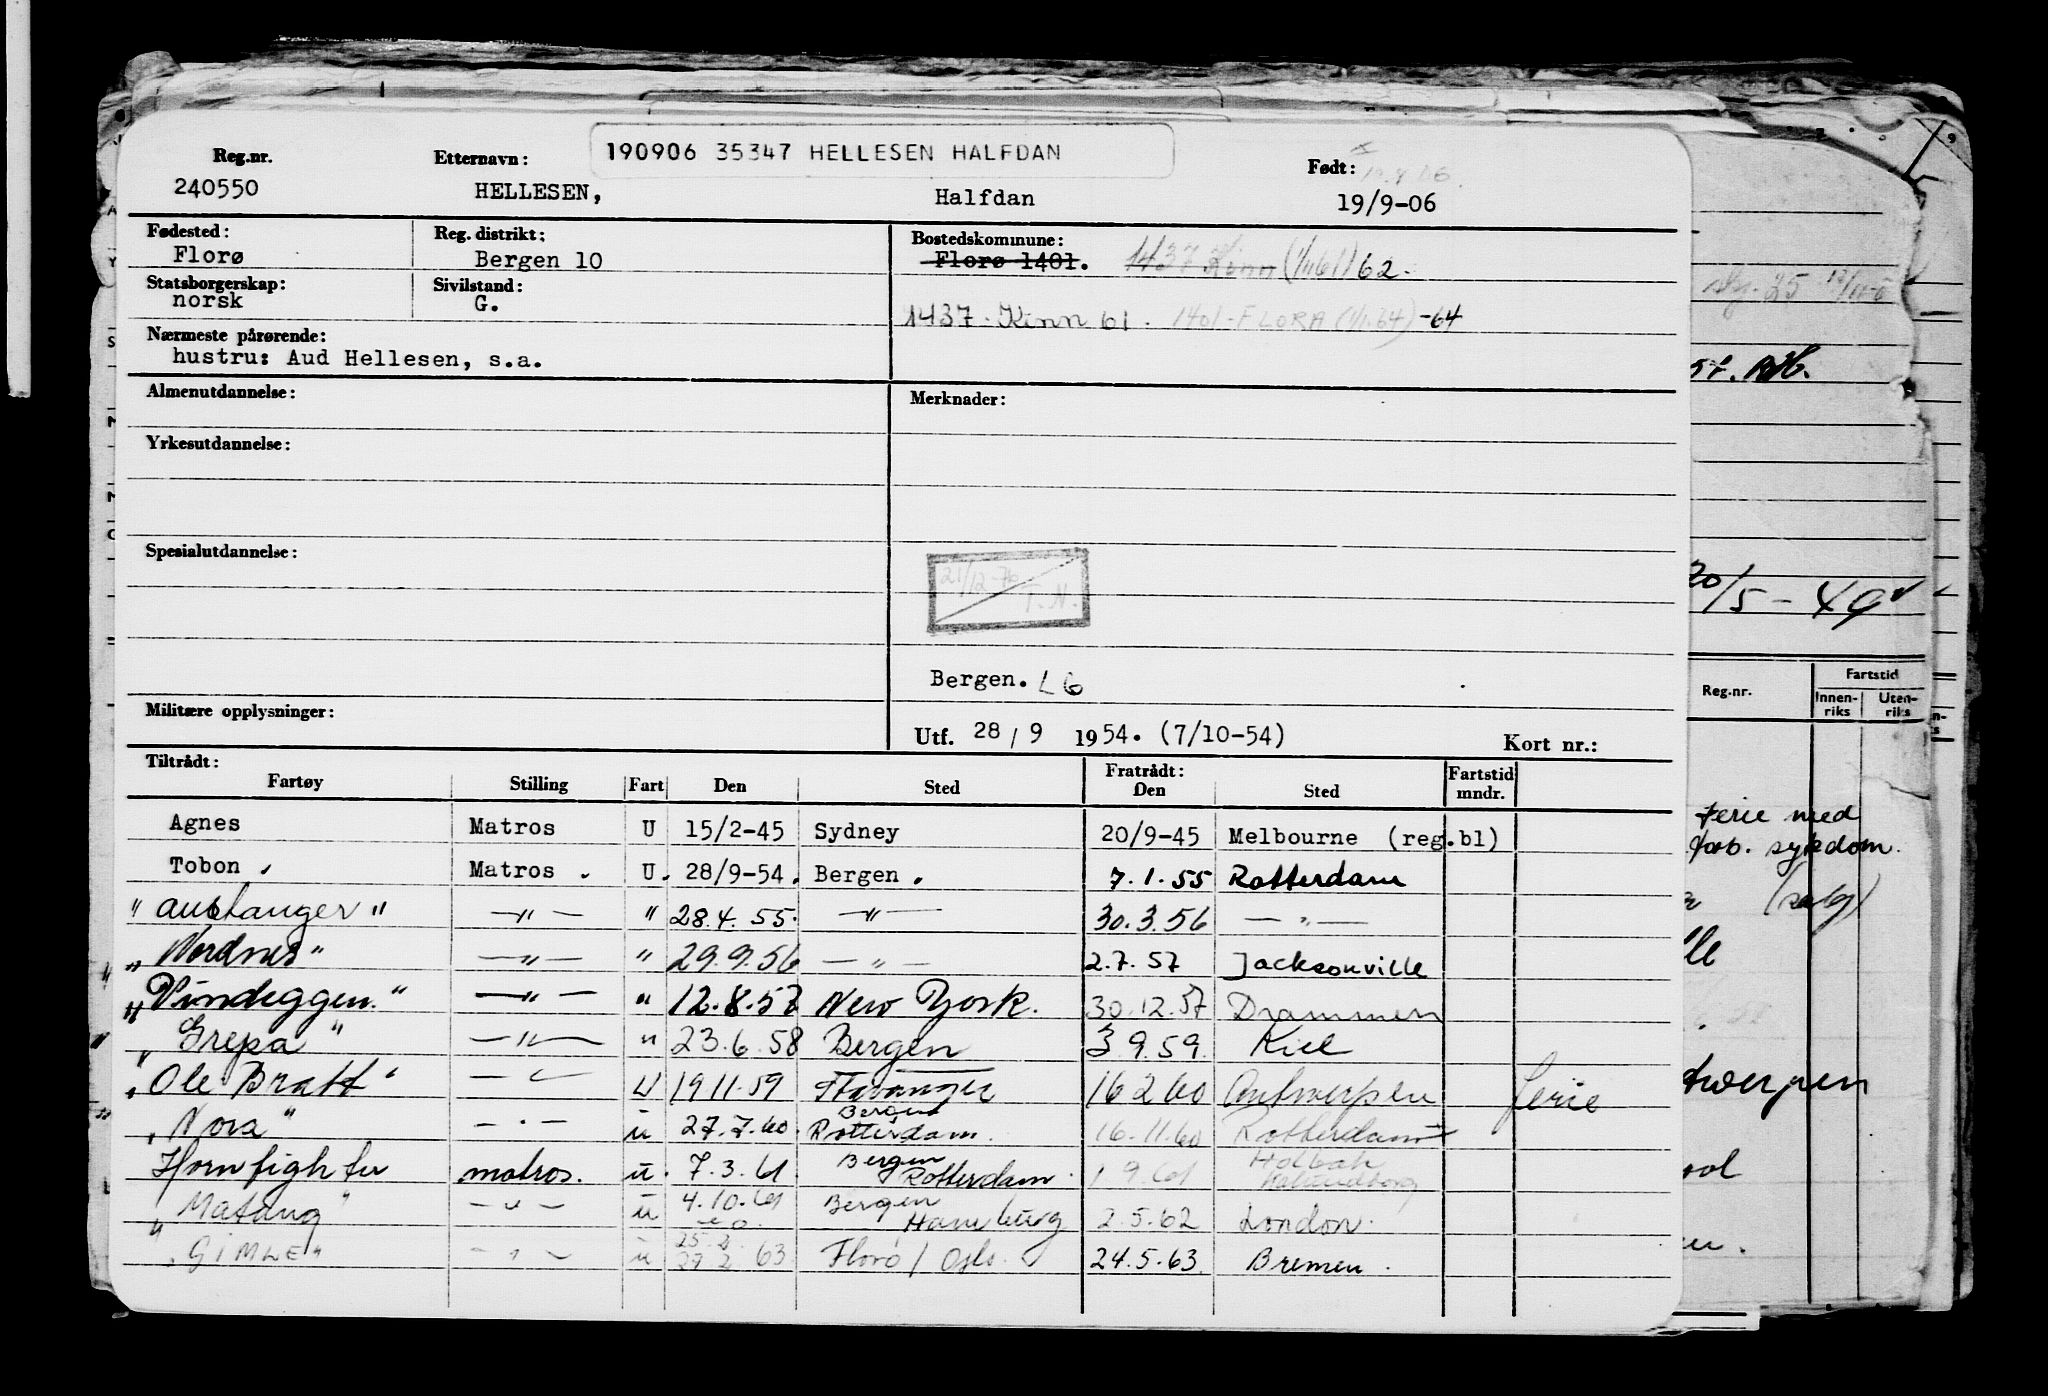 190906 35347 HELLESEN HALFDAN
Reg.nr. Etternavn: Født:
240550 HELLESEN, Halfdan 19/9-06
Fødested: Reg. distrikt: Bostedskommune:
Florø Bergen 10 Florø 1401. 1437 Kinn (1/1 61) 62.
Statsborgerskap: Sivilstand:
norsk G. 1437 - Kinn 61. 1401-FLORA (1/1.64) -64
Nærmeste pårørende:
hustru: Aud Hellesen, s.a.
Almenutdannelse: Merknader:
Yrkesutdannelse:
Spesialutdannelse:
21/12-76 T.N.
Bergen. L6
Militære opplysninger:
Utf. 28/9 1954. (7/10-54) Kort nr.:
Tiltrådt: Fratrådt: Fartstid
Fartøy Stilling Fart Den Sted Den Sted mndr.
Agnes Matros U 15/2-45 Sydney 20/9-45 Melbourne (reg.bl)
Tobon. Matros. U. 28/9-54. Bergen. 7.1.55 Rotterdam
"Austanger" —"— " 28.4.55. —"— 30.3.56 —"—
"Nordnes" —"— " 29.9.56 —"— 2.7.57 Jacksonville
"Vindeggen." —"— " 12.8.57 New York. 30.12.57 Drammen
"Grepa" —"— " 23.6.58 Bergen 3.9.59. Kiel
"Ole Bratt" —"— U 19 11.59 Stavanger 16 2 60 Antwerpen ferie
"Nora" —"— u 27.7.60. Bergen Rotterdam. 16.11.60 Rotterdam
Hornfighter matros. u. 7.3.61 Bergen Rotterdam. 1 9.61 Holbæk Kalundborg
"Matang" —"— u 4.10.61 Bergen Hamburg 2.5.62 London.
"GIMLE" —"— u 25.2. 27 2 63 Florø / Oslo. 24.5.63. Bremen.
57.
20/5-49
Reg.nr. Fartstid
Innen-riks Uten-riks
Ferie med
forb. sykdom.
(salg)